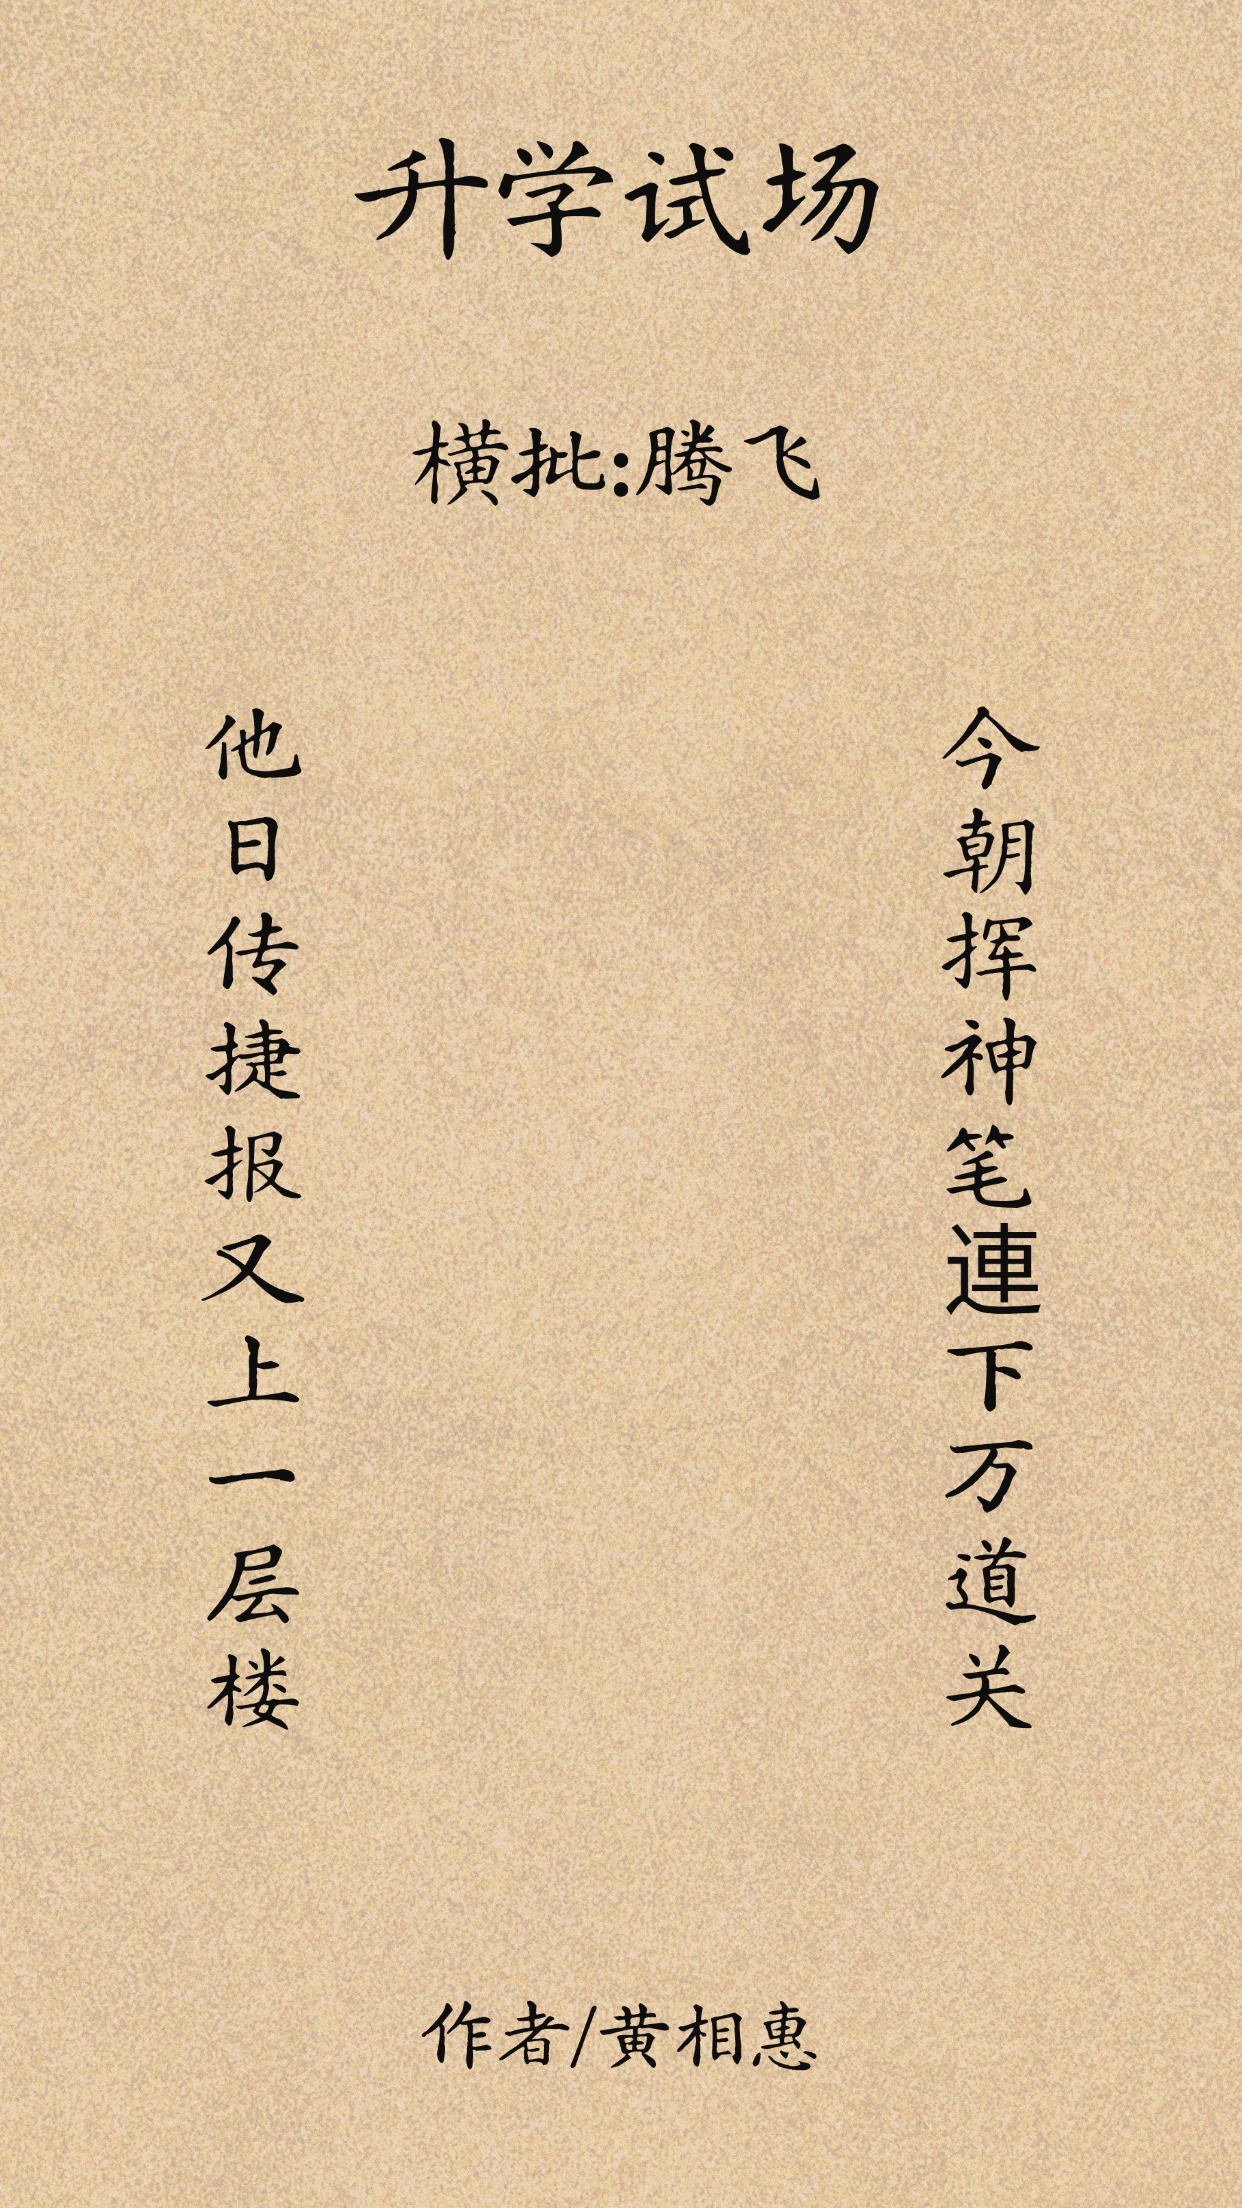 升学试场
横批:腾飞
今朝挥神笔連下万道关
他日传捷报又上一层楼
作者/黄相惠